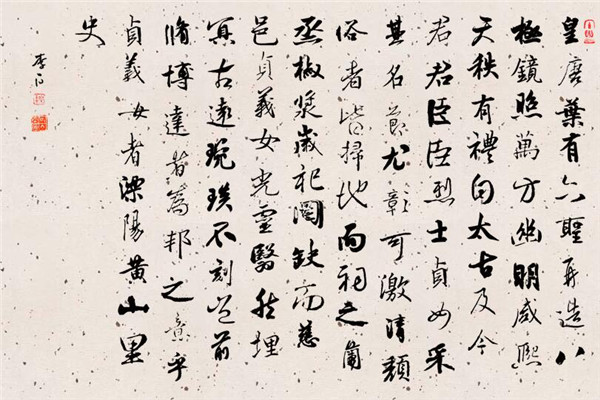 皇唐葉有六聖再造八
極鏡照萬方幽明咸熙
天秩有禮自太古及今
君君臣臣烈士貞女采
其名節尤彰可激清頹
俗者皆掃地而祠之蘭
蒸椒漿歲祀罔缺而茲
邑貞義女光靈翳然埋
冥古遠琬琰不刻豈前
脩博達者為邦之意乎
貞義女者溧陽黃山里
史
李